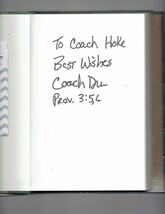 To Coach Hoke
Best Wishes
Coach Du
Prov. 3:5,6